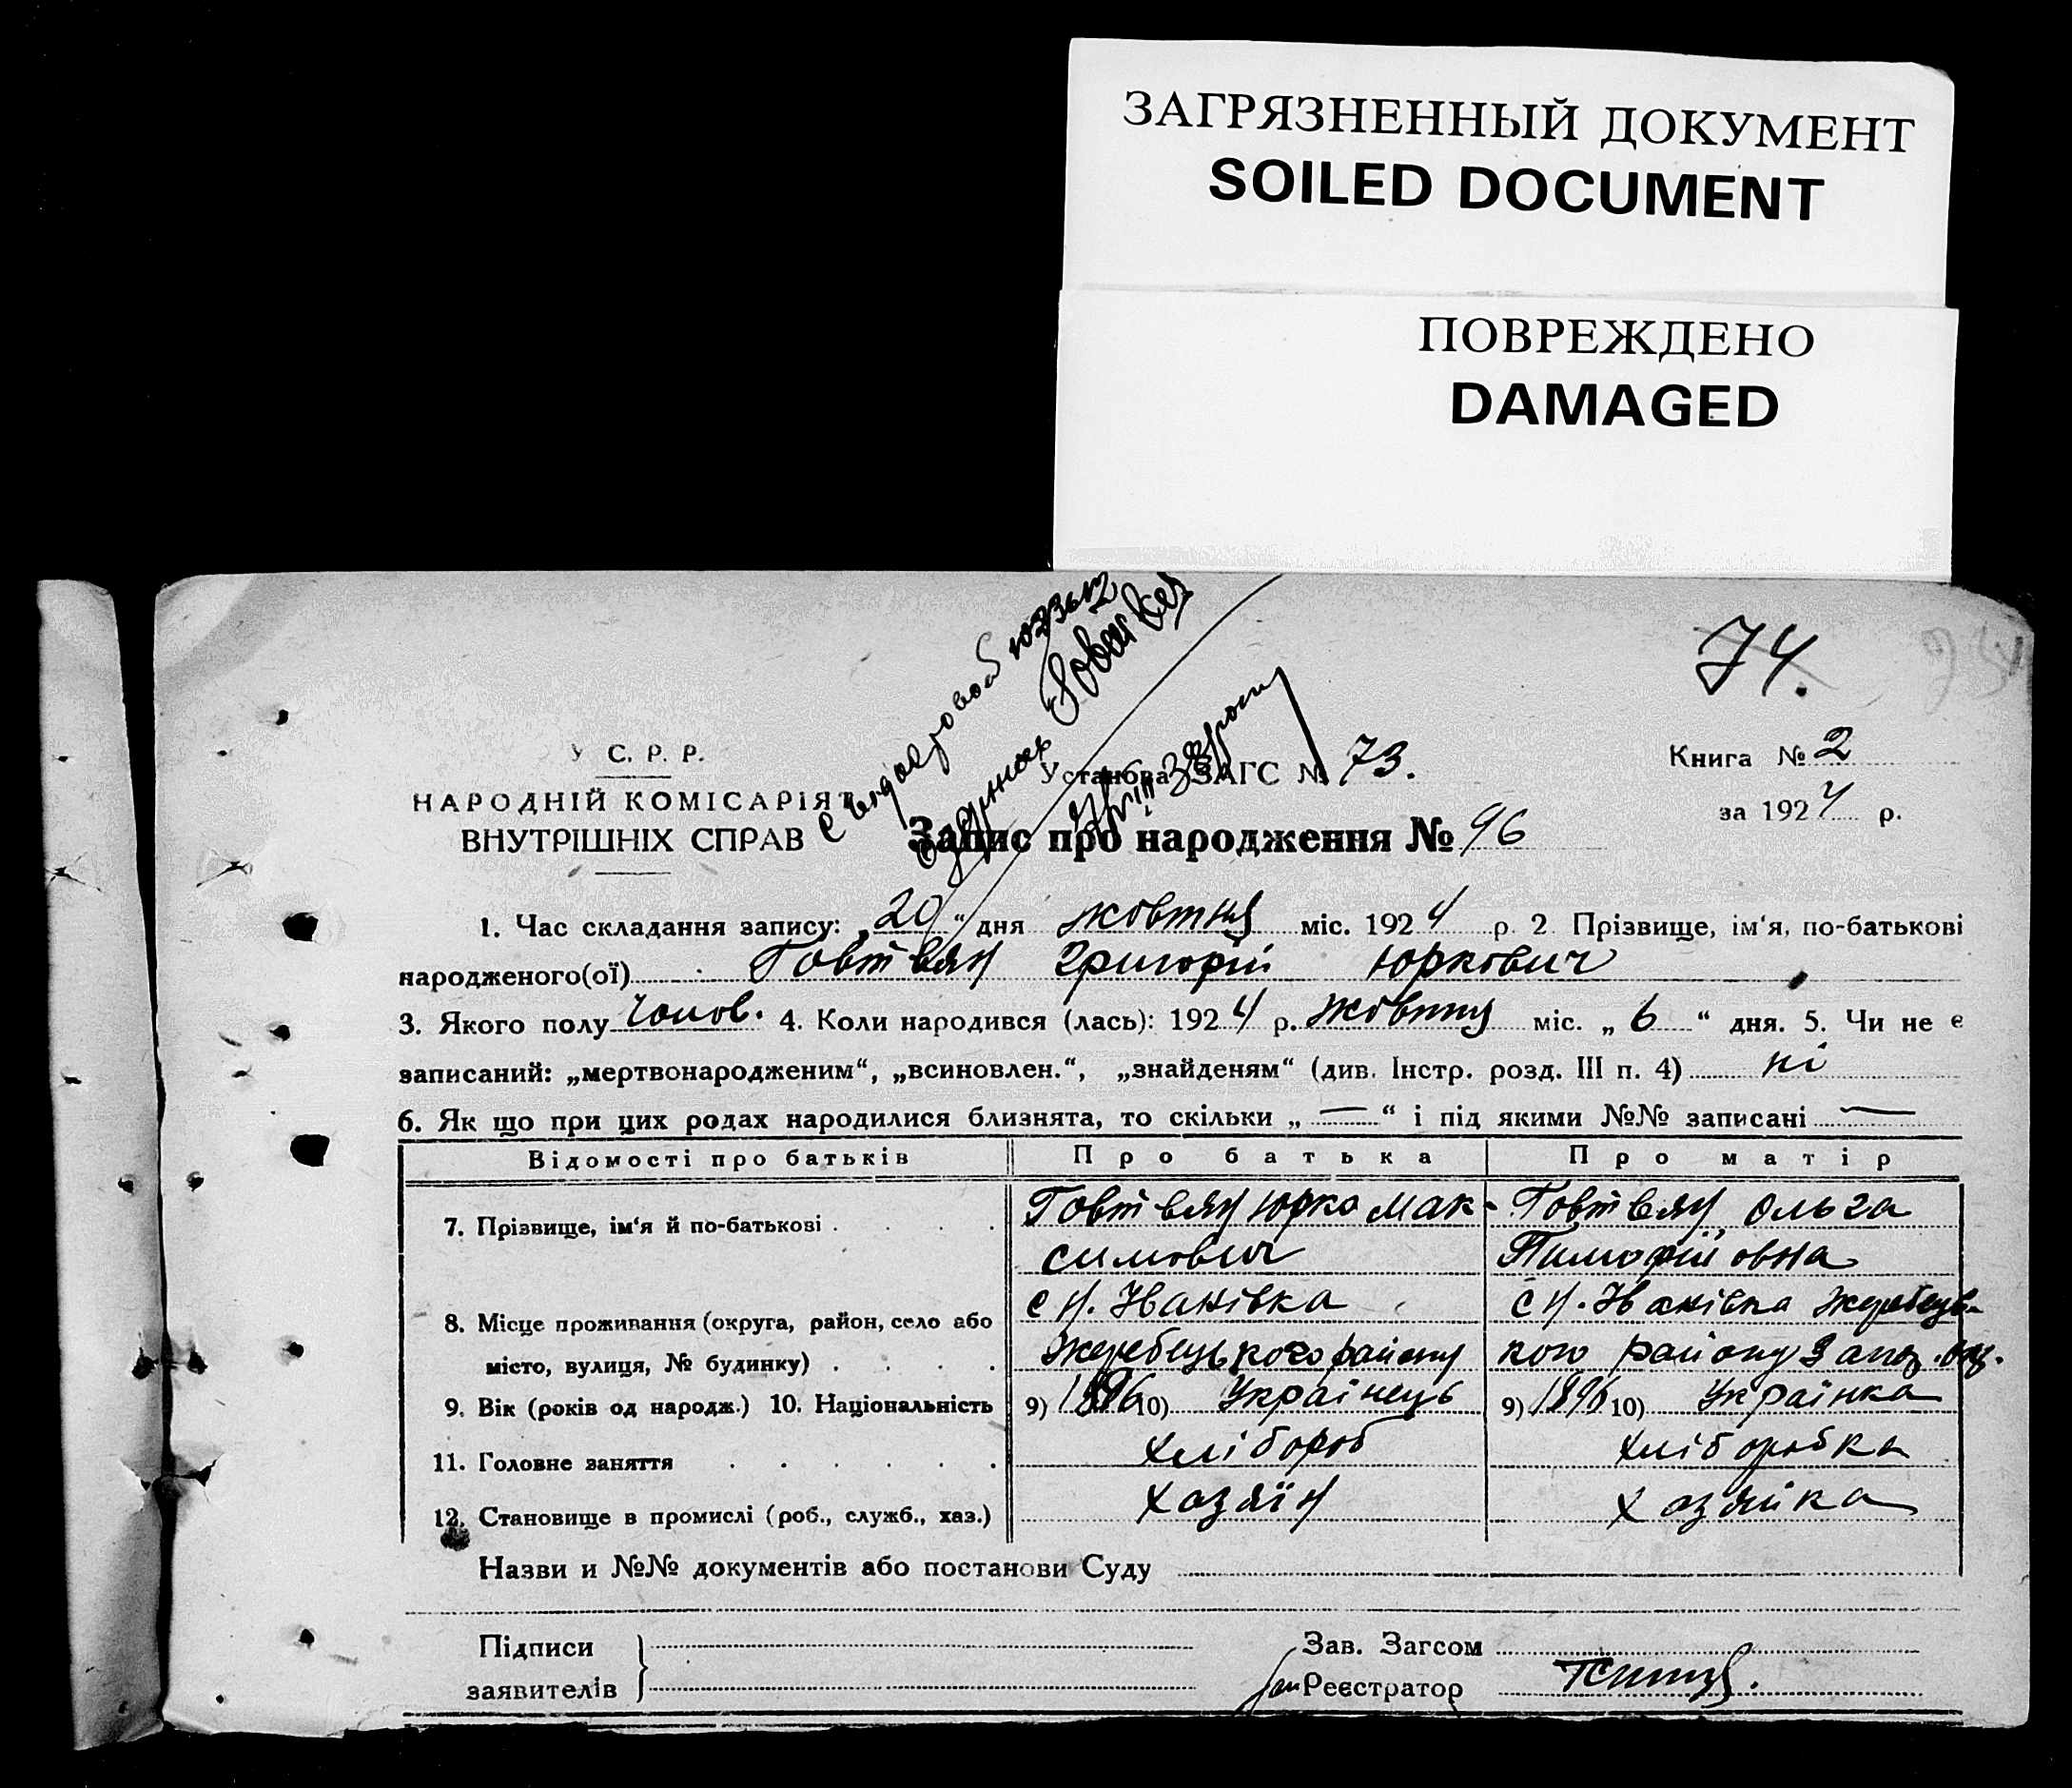 ЗАГРЯЗНЕННЫЙ ДОКУМЕНТ
SOILED DOCUMENT
ПОВРЕЖДЕНО
DAMAGED
74.
У С. Р. Р.
НАРОДНІЙ КОМІСАРІЯТ
ВНУТРІШНІХ СПРАВ
Установа ЗАГС № 73.
Книга № 2
за 1924 р.
Запис про народження № 96
1. Час складання запису: „20“ дня жовтня міс. 1924 р. 2. Прізвище, ім'я, по-батькові
народженого(ої) Говтвян Григорій Юркович
3. Якого полу чолов. 4. Коли народився (лась): 1924 р. жовтня міс. „6“ дня. 5. Чи не є
записаний: „мертвонародженим“, „всиновлен.“, „знайденям“ (див. Інстр. розд. III п. 4) ні
6. Як що при цих родах народилися близнята, то скільки „—“ і під якими №№ записані —
Відомості про батьків Про батька Про матір
7. Прізвище, ім'я й по-батькові Говтвян Юрко Мак-симович Говтвян Ольга Тимофійовна
8. Місце проживання (округа, район, село або місто, вулиця, № будинку) с Н. Іванівка Жеребецького району с Н. Іванівка Жеребець-кого району Запор. окр.
9. Вік (років од народж.) 10. Національність 9) 1896 10) Українець 9) 1896 10) Українка
11. Головне заняття хлібороб хліборобка
12. Становище в промислі (роб., служб., хаз.) хозяїн хозяйка
Назви и №№ документів або постанови Суду
Підписи
заявителів
Зав. Загсом
Реєстратор